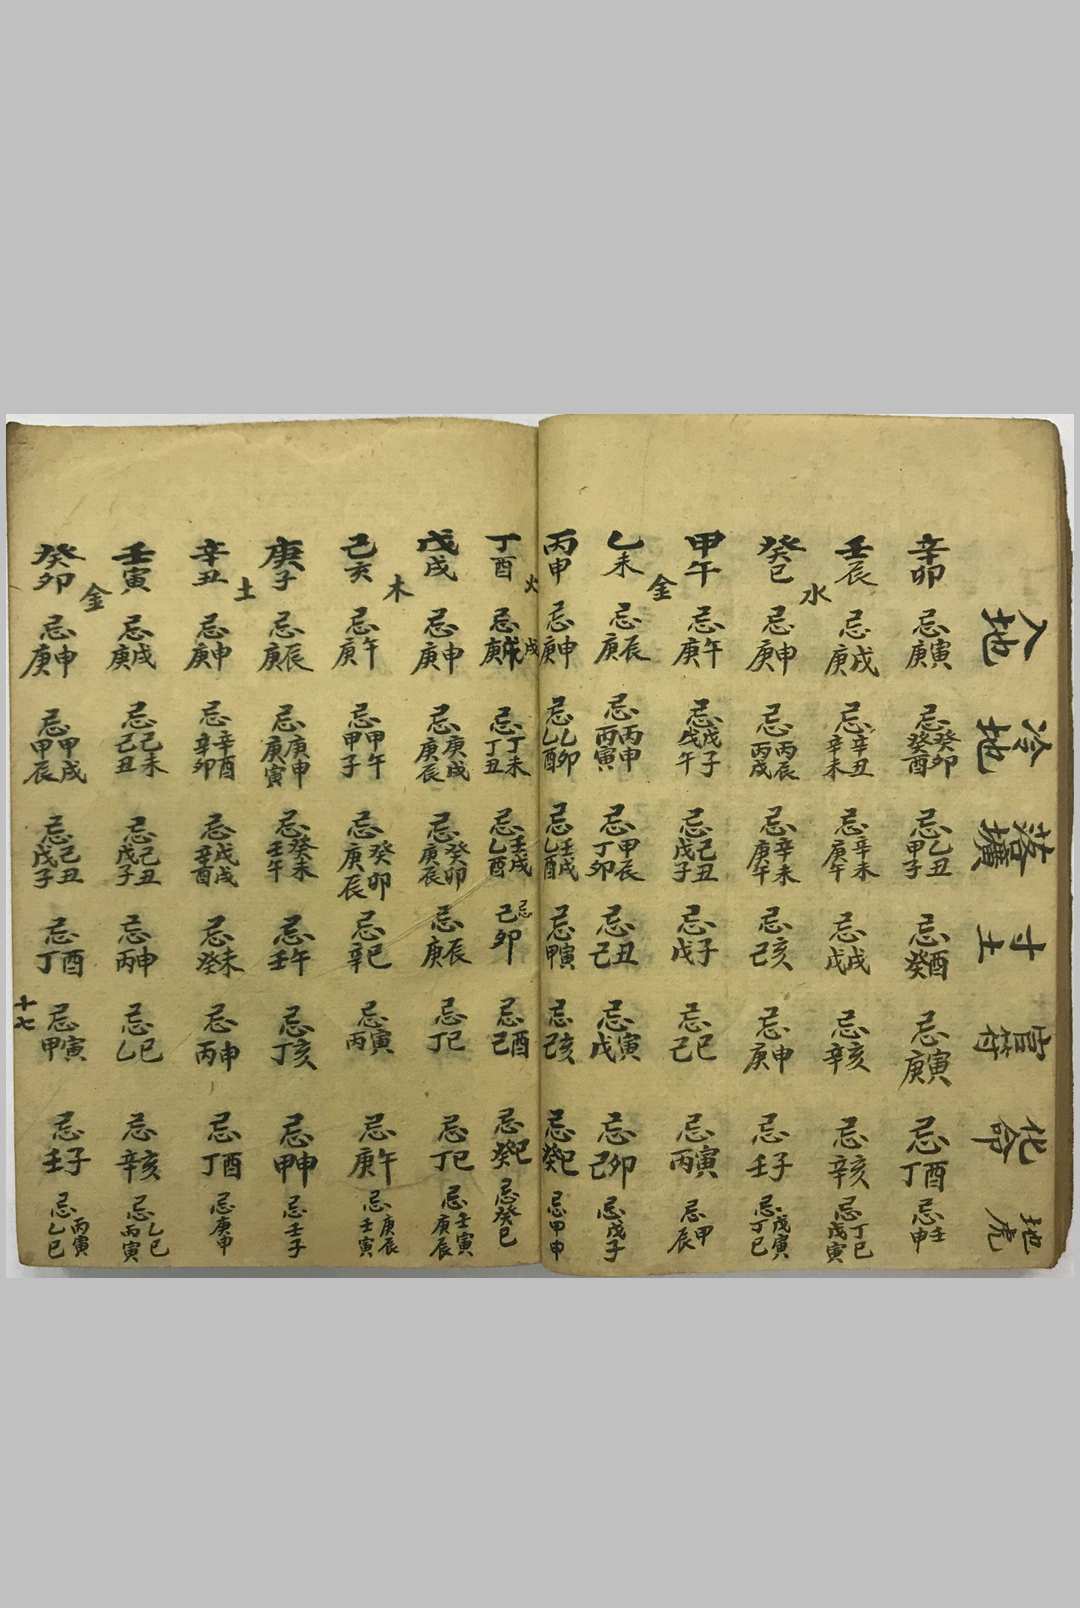 入地 冷地 落壙 寸土 官符 化命 地虎
辛卯 忌庚寅 忌癸卯癸酉 忌乙丑甲子 忌癸酉 忌庚寅 忌丁酉 忌壬申
壬辰 忌庚戌 忌辛丑辛未 忌辛未庚午 忌戊戌 忌辛亥 忌辛亥 忌丁巳戊寅
水
癸巳 忌庚申 忌丙辰丙戌 忌辛未庚午 忌己亥 忌庚申 忌壬子 忌戊寅丁巳
甲午 忌庚午 忌戊子戊午 忌己丑戊子 忌戊子 忌己巳 忌丙寅 忌甲辰
金
乙未 忌庚辰 忌丙申丙寅 忌甲辰丁卯 忌己丑 忌戊寅 忌己卯 忌戊子
丙申 忌庚申 忌乙卯乙酉 忌壬戌乙酉 忌甲寅 忌己亥 忌癸巳 忌甲申
火
丁酉 忌庚戌 忌丁未丁丑 忌壬戌乙酉 忌己卯 忌己酉 忌癸巳 忌癸巳
戊戌 忌庚申 忌庚戌庚辰 忌癸卯庚辰 忌庚辰 忌丁巳 忌丁巳 忌壬寅庚辰
木
己亥 忌庚午 忌甲午甲子 忌癸卯庚辰 忌辛巳 忌丙寅 忌庚午 忌庚辰壬寅
庚子 忌庚辰 忌庚申庚寅 忌癸未壬午 忌壬午 忌丁亥 忌甲申 忌壬子
土
辛丑 忌庚申 忌辛酉辛卯 忌戊戌辛酉 忌癸未 忌丙申 忌丁酉 忌庚申
壬寅 忌庚戌 忌己未己丑 忌己丑戊子 忌丙申 忌乙巳 忌辛亥 忌乙巳丙寅
金
癸卯 忌庚申 忌甲戌甲辰 忌己丑戊子 忌丁酉 忌甲寅 忌壬子 忌丙寅乙巳
十七